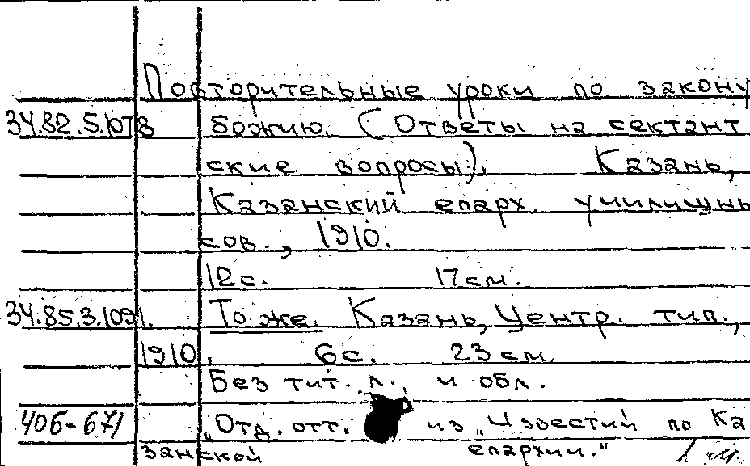 Повторительные уроки по закону
34.82.5.107в божию. (Ответы на сектант
ские вопросы). Казань,
Казанский епарх. училищнь
сов., 1910.
12с. 17см.
34.85.3.1091. То же. Казань, Центр. тип.,
1910. 6с. 23см.
Без тит. л., и обл.
406-671 „Отд. отт. из „Известий по Ка
занской епархии."